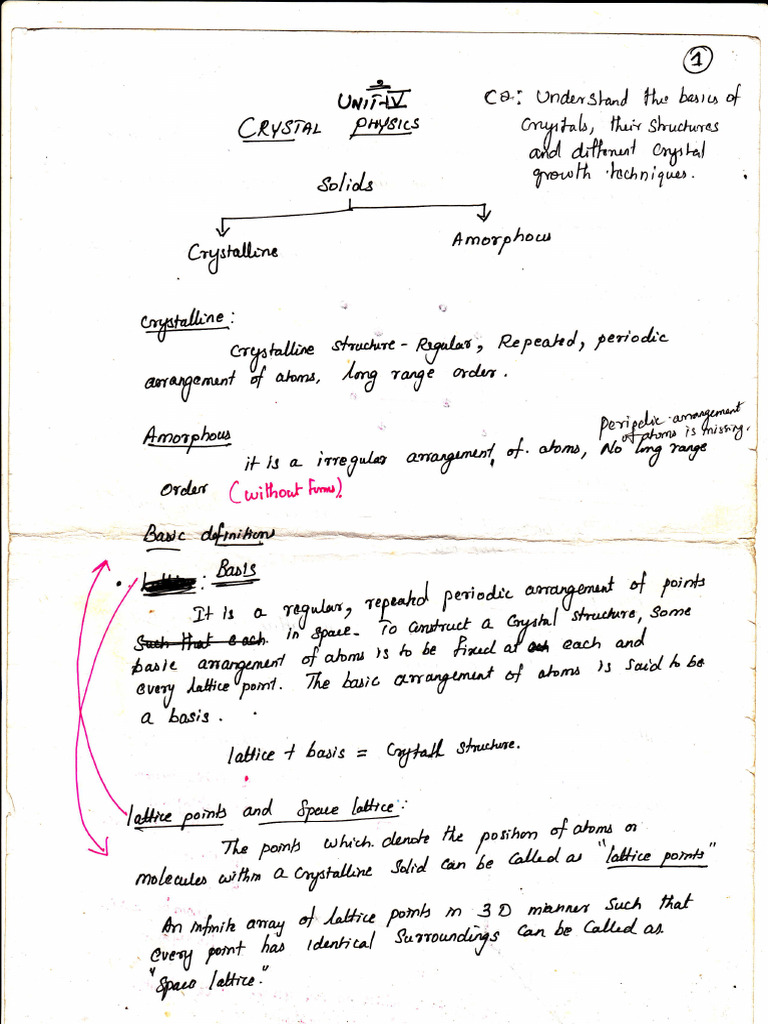 1
UNIT-IV
CRYSTAL PHYSICS
CO: Understand the basics of
Crystals, their structures
and different Crystal
growth techniques.
Solids
Crystalline
Amorphous
Crystalline:
Crystalline structure - Regular, Repeated, periodic
arrangement of atoms, long range order.
Amorphous
Periodic arrangement
of atoms is missing.
it is a irregular arrangement of atoms, No long range
Order (without forms).
Basic definition
: Basis
It is a regular, repeated periodic arrangement of points
such that each in space. To construct a Crystal structure, some
basic arrangement of atoms is to be fixed at each and
every lattice point. The basic arrangement of atoms is said to be
a basis.
lattice + basis = Crytall structure.
lattice points and Space lattice:
The points which denote the position of atoms or
molecules within a crystalline Solid can be called as "lattice points"
An infinite array of lattice points in 3D manner such that
every point has identical surroundings can be called as
"Space lattice."